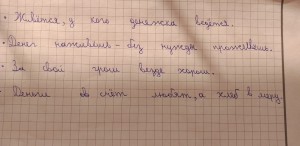 • Живётся, у кого денежка ведётся.
• Денег наживёшь – без нужды проживёшь.
• За свой грош везде хорош.
• Деньги счёт любят, а хлеб в меру.